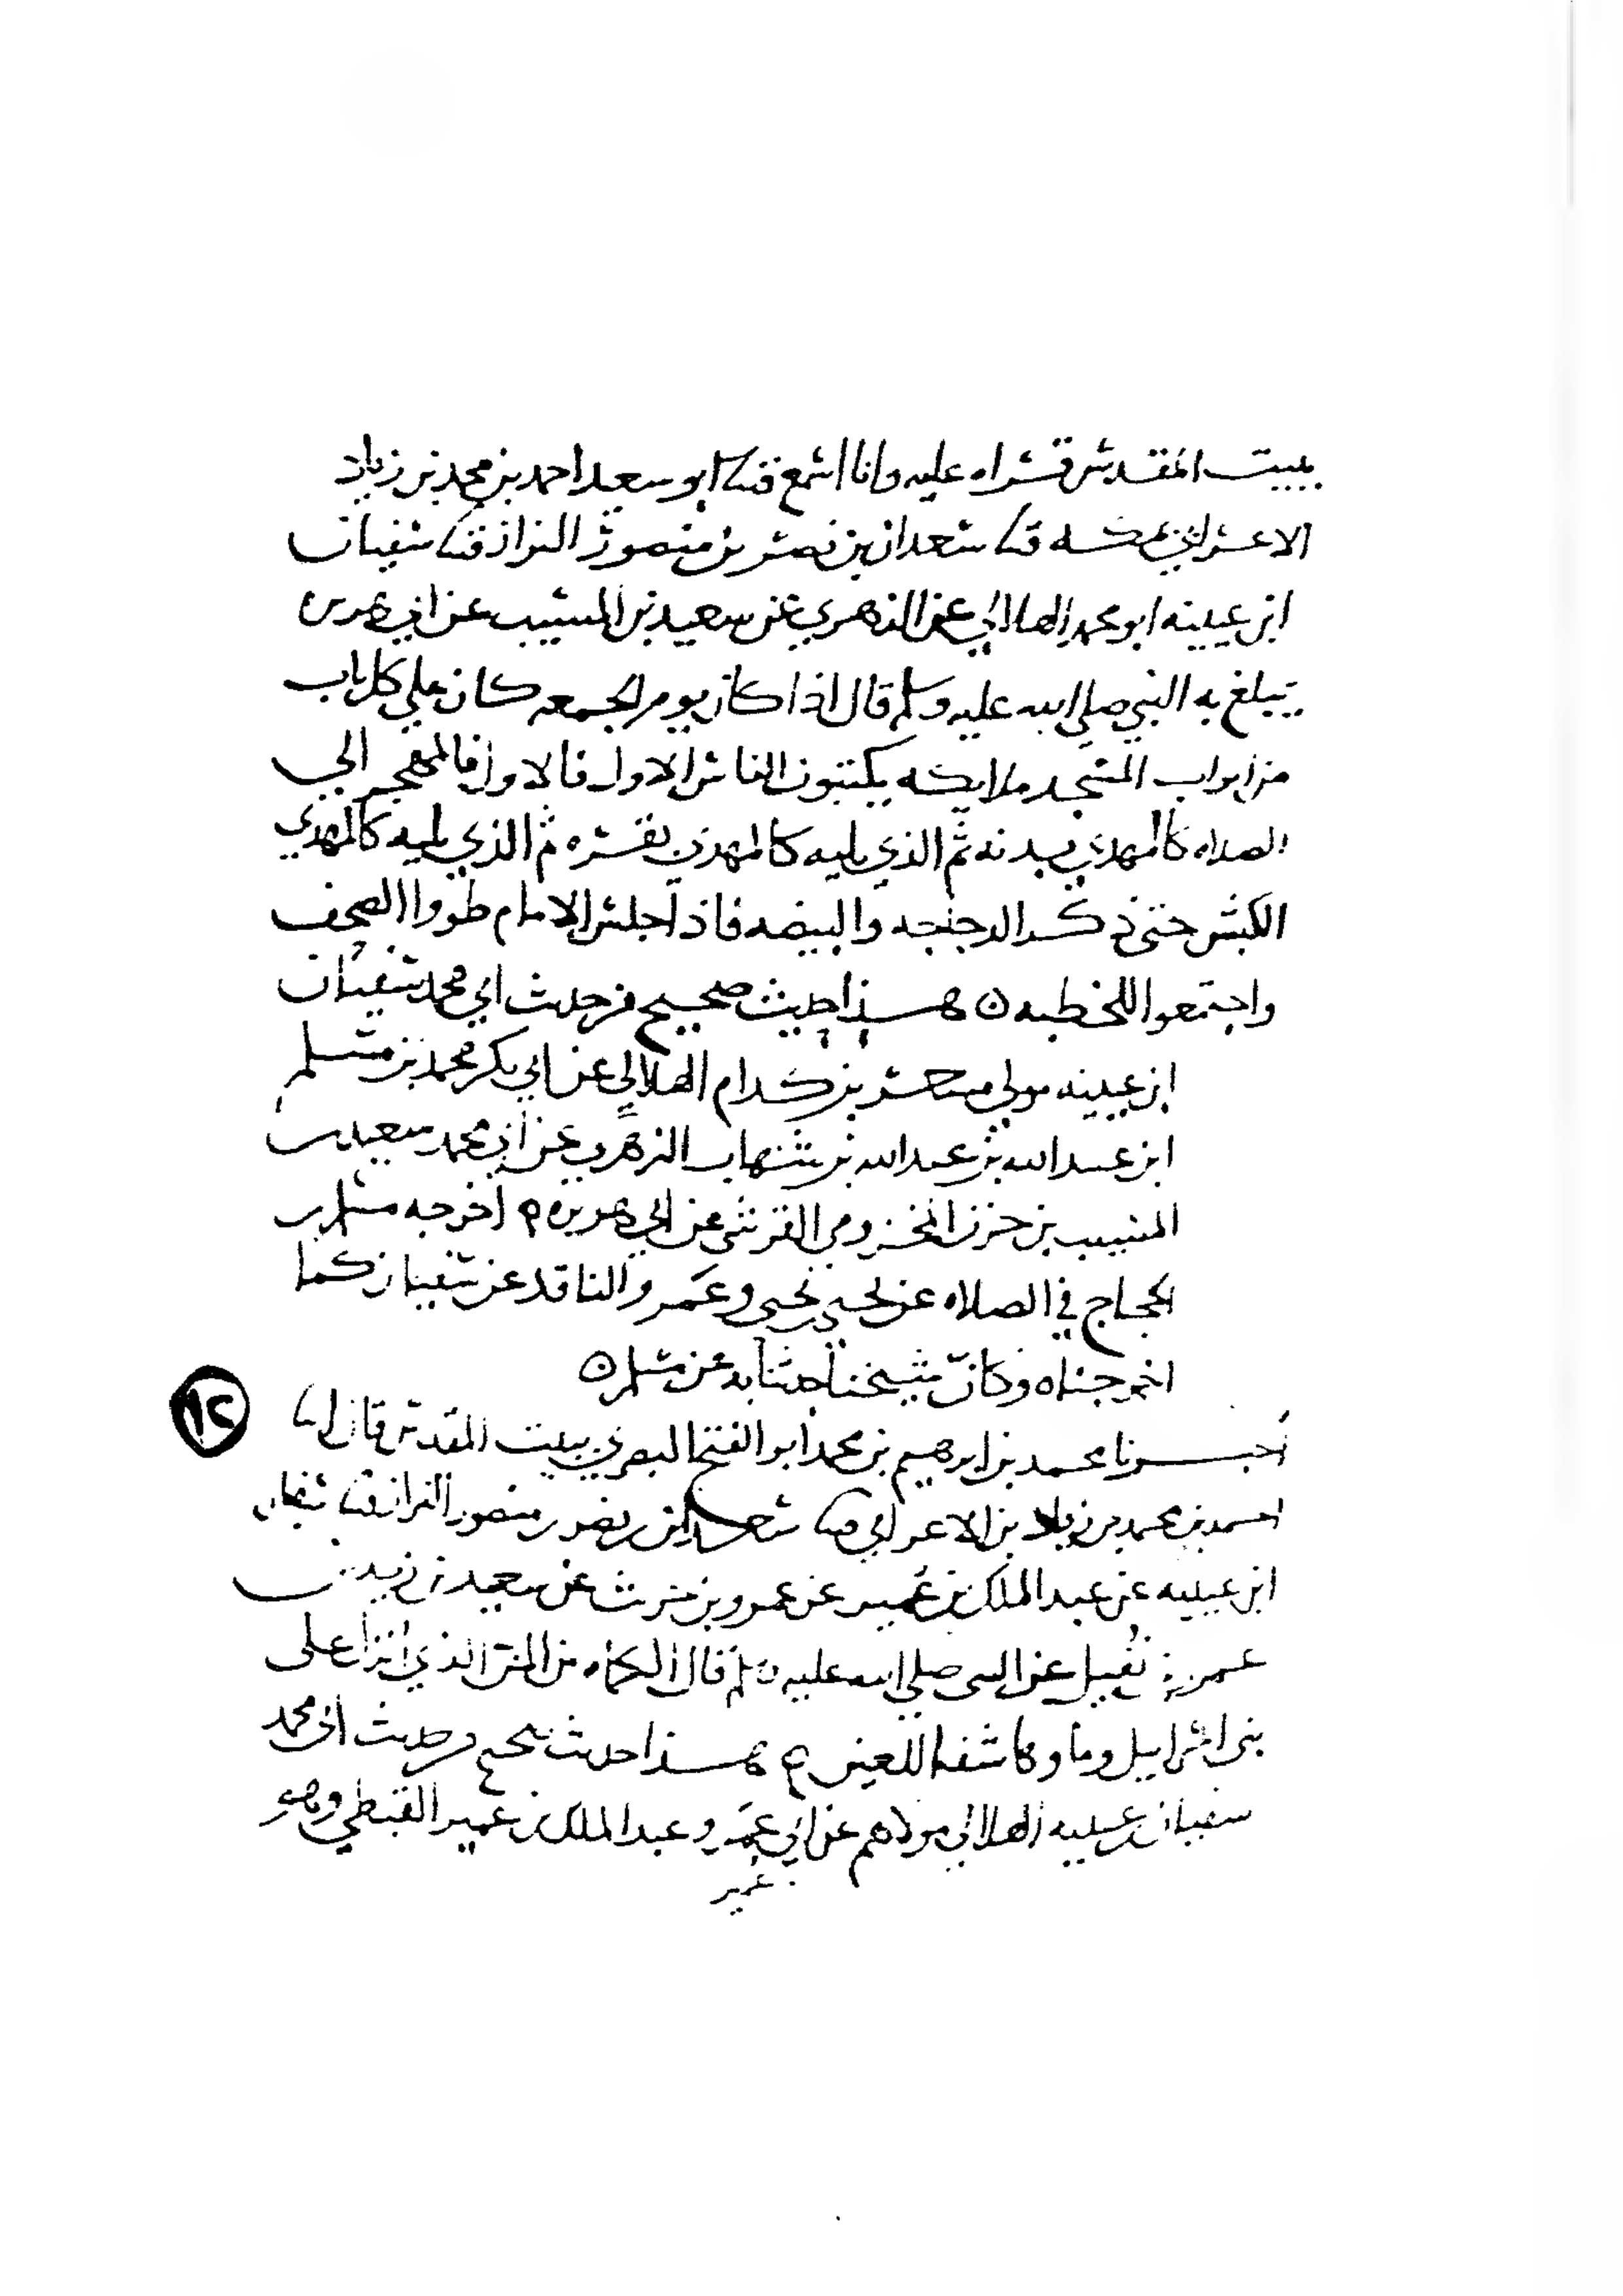 ببيت المقدس قراه عليه وانا اسمع قثنا ابو سعيد احمد بن محمد بن زياد
الاعرابي بمكه قثنا سعدان بن نصر بن منصور البزاز قثنا سفيان
ابن عيينه ابو محمد الهلالي عن الزهري عن سعيد بن المسيب عن ابي هريره
يبلغ به النبي صلي الله عليه وسلم قال اذا كان يوم الجمعه كان علي كل باب
من ابواب المسجد ملايكه يكتبون الناس الاول فالاول فالمهجر الي
الصلاه كالمهدي بدنه ثم الذي يليه كالمهدي بقره ثم الذي يليه كالمهدي
الكبش حتى ذكر الدجاجه والبيضه فاذا جلس الامام طووا الصحف
واجتمعوا للخطبه ن هذا حديث صحيح من حديث ابي محمد سفيان
ابن عيينه مولي مسعر بن كدام الهلالي عن ابي بكر محمد بن مسلم
ابن عبد الله بن عبد الله بن شهاب الزهري عن ابي محمد سعيد بن
المسيب بن حزن المخزومي القرشي عن ابي هريره ه اخرجه مسلم بن
الحجاج في الصلاه عن يحيى بن يحيى وعمرو الناقد عن سفيان كما
اخرجناه وكان شيخنا حدثنا به عن مسلم ن
١٢
اخبرنا محمد بن ابرهيم بن محمد ابو الفتح البصري ببيت المقدس قال انا
احمد بن محمد بن زياد بن الاعرابي قثنا سعدان بن نصر بن منصور البزاز قثنا سفيان
ابن عيينه عن عبد الملك بن عمير عن عمرو بن حريث عن سعيد بن زيد بن
عمرو بن نفيل عن النبى صلي الله عليه وسلم قال الكماه من المن الذي انزل على
بنى اسرايل وماوها شفا للعين ه هذا حديث صحيح من حديث ابى محمد
سفيان بن عيينه الهلالي مولاهم عن ابي عمر و عبد الملك بن عمير القبطي وهو
عمير